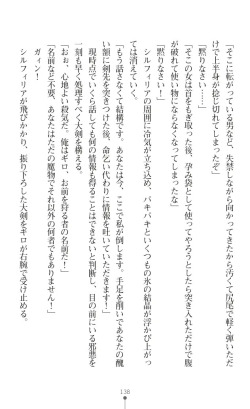 「そこに転がっている男など、失禁しながら向かってきたから汚くて尻尾で軽く弾いただ
けで上半身が捻じ切れてしまってな」
「黙りなさい……」
「そこの女は首をもぎ取った後、孕み袋として使ってやろうとしたら突き入れただけで腹
が破れて使い物にならなくなってしまったな」
「黙りなさい！」
シルフィリアの周囲に冷気が立ち込め、パキパキといくつもの氷の結晶が浮かび上がっ
ては消えていく。
「もう話さなくて結構です。あなたは今、ここで私が倒します。手足を削いであなたの醜
い額に剣先を突きつけた後、命乞い代わりに情報を吐いてもらいます！」
現時点でいくら話しても何の情報も得ることはできないと判断し、目の前にいる邪悪を
一刻も早く処理すべく大剣を構える。
「おぉ、心地よい殺気だ。俺はギロ、お前を狩る者の名前だ！」
「名前など不要。あなたはただの魔物でそれ以外の何者でもありません！」
ガィン！
シルフィリアが飛びかかり、振り下ろした大剣をギロが右腕で受け止める。
138